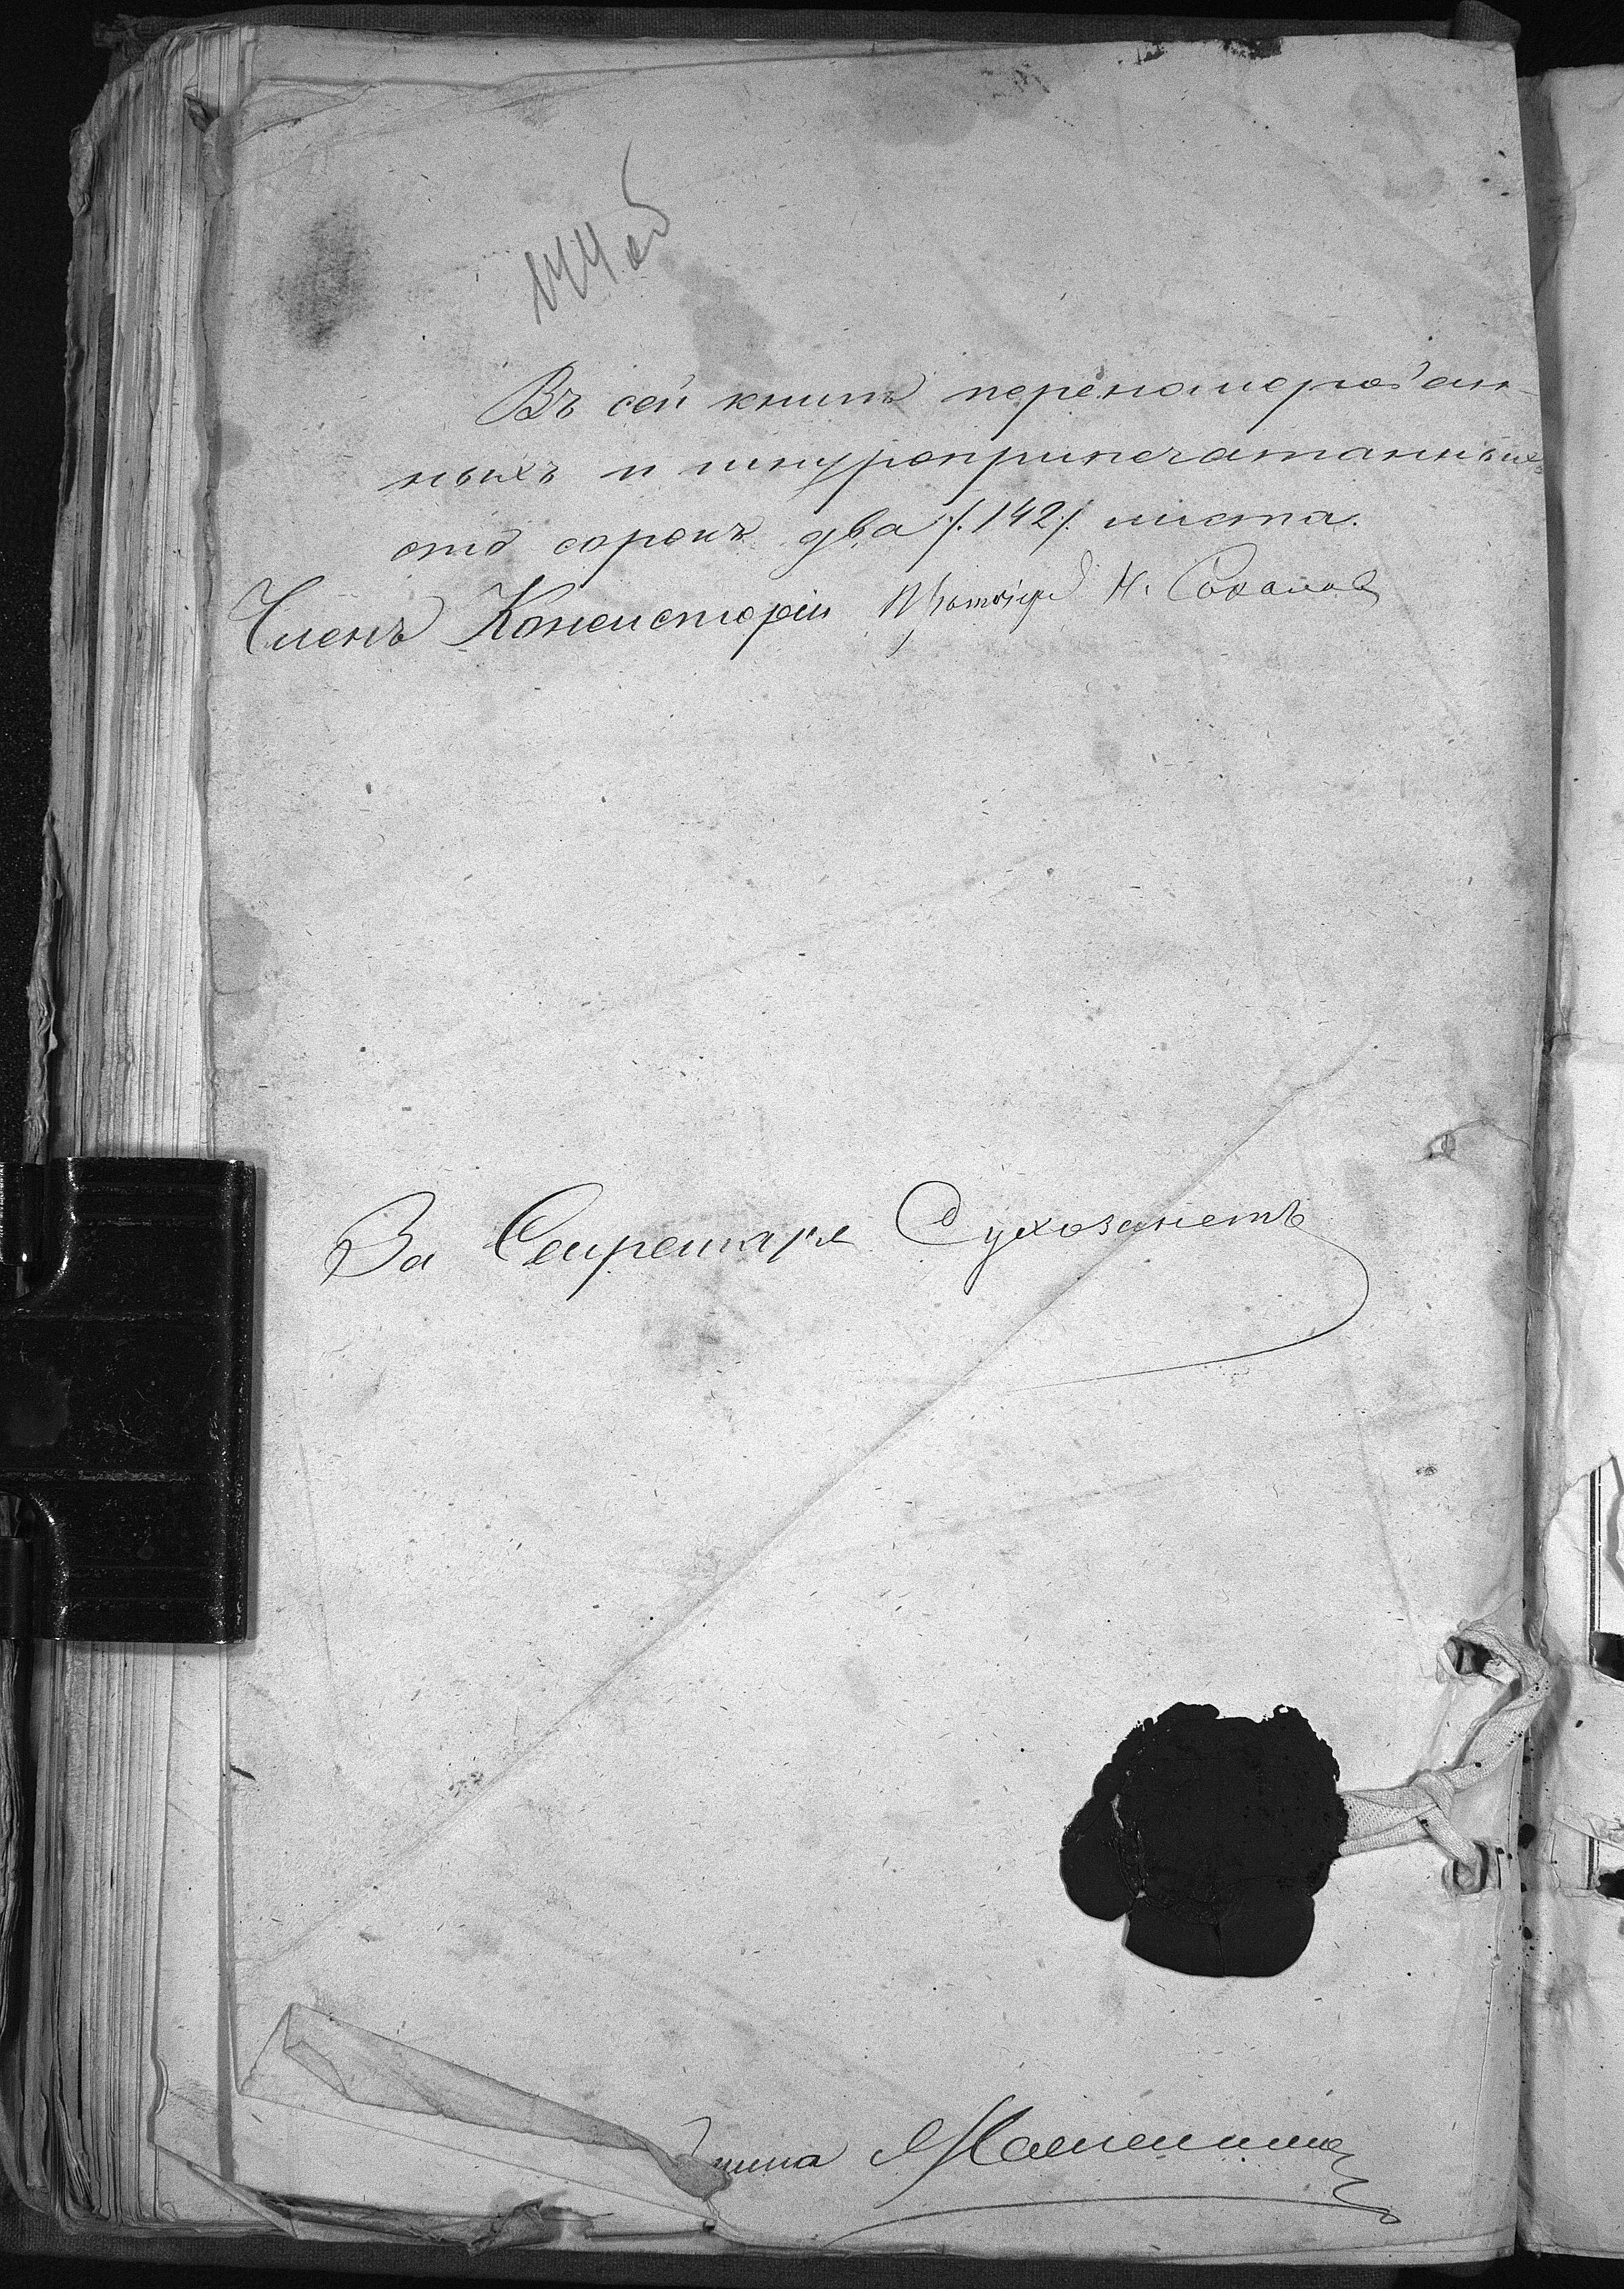 144 об
Въ сей книгѣ перенумерован-
ныхъ и шнуроприпечатанныхъ
сто сорокъ два /:142:/ листа.
Членъ Консисторіи Протоіерей Н. Соколовъ
За Секретаря Сухозанетъ